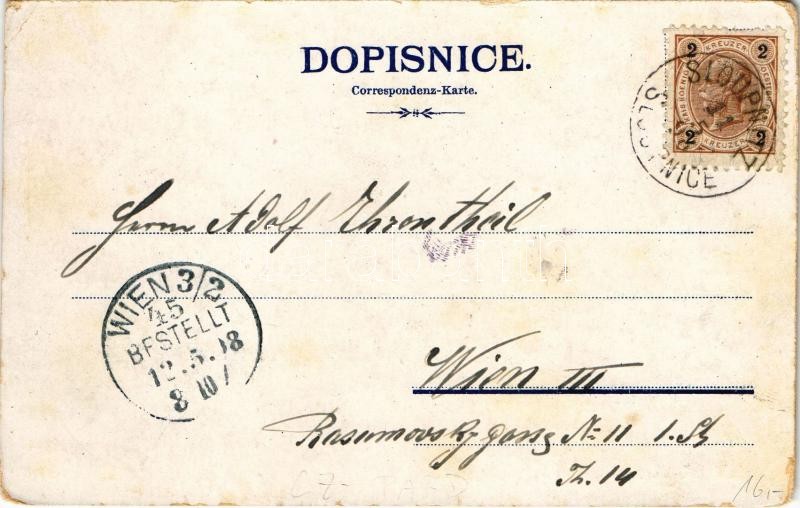 DOPISNICE.
Correspondenz-Karte.
2 KREUZER 2
2 KREUZER 2
SLOUPNICE
Herrn Adolf Ehrentheil
WIEN 3/2
45
BESTELLT
12.5.98
8
Wien III
Rasumovskygasse No 11 1. St
Th. 14
16,-